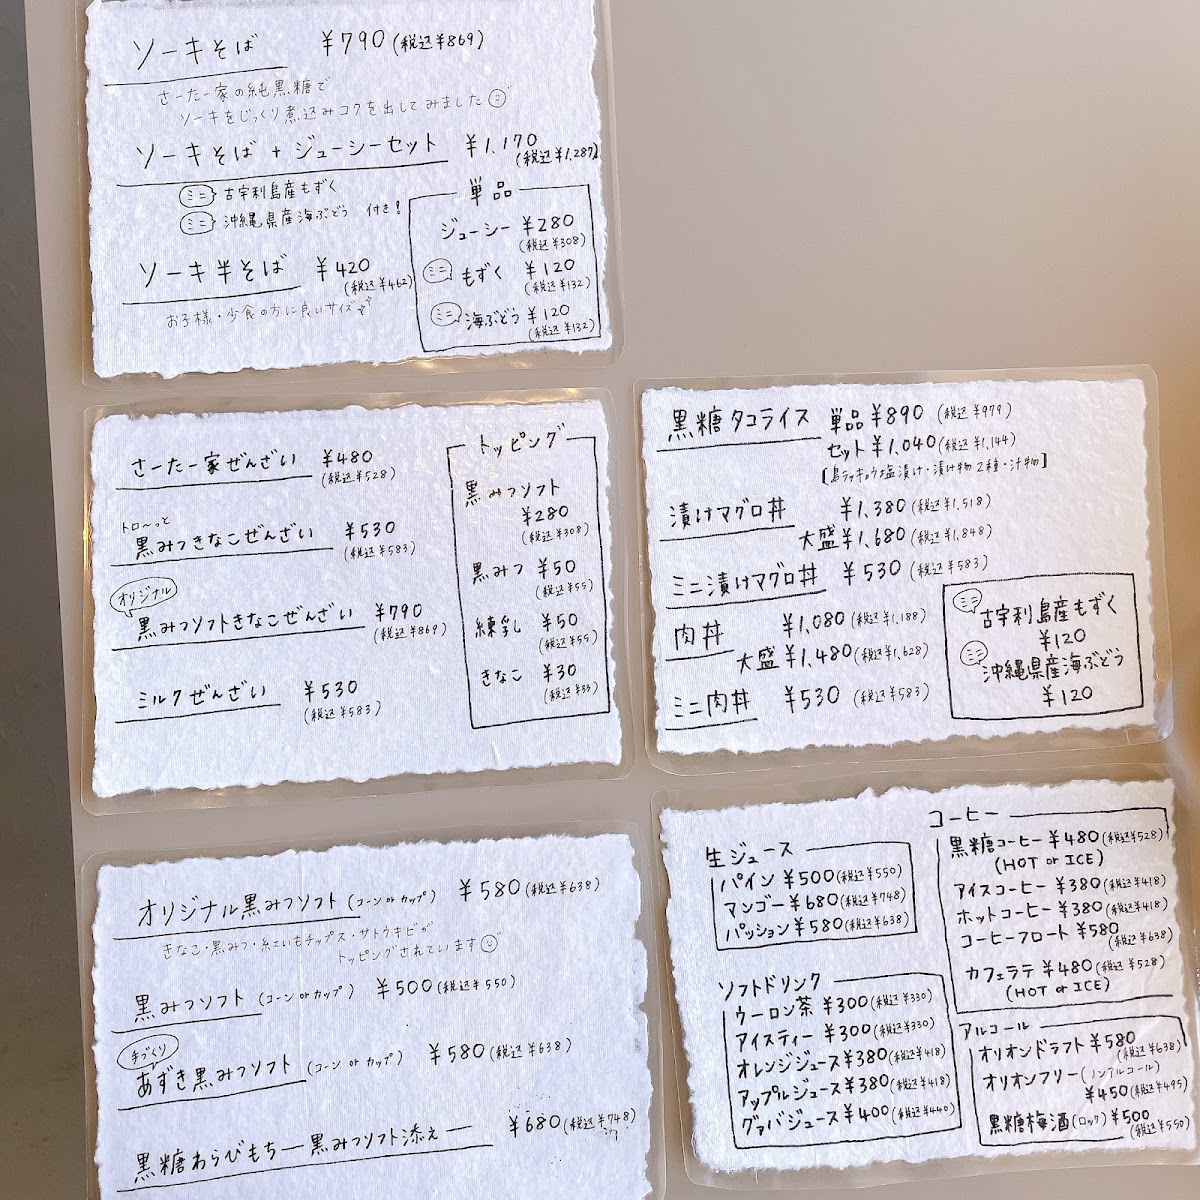 ソーキそば ¥790(税込¥869)
さーたー家の純黒糖で
ソーキをじっくり煮込みコクを出してみました
ソーキそば + ジューシーセット ¥1,170
(税込¥1,287)
ミニ 古宇利島産もずく
ミニ 沖縄県産海ぶどう 付き!
ソーキ半そば ¥420
(税込¥462)
お子様・少食の方に良いサイズ
単品
ジューシー ¥280
(税込¥308)
ミニ もずく ¥120
(税込¥132)
ミニ 海ぶどう ¥120
(税込¥132)
さーたー家ぜんざい ¥480
(税込¥528)
トロ〜っと
黒みつきなこぜんざい ¥530
(税込¥583)
オリジナル
黒みつソフトきなこぜんざい ¥790
(税込¥869)
ミルクぜんざい ¥530
(税込¥583)
トッピング
黒みつソフト
¥280
(税込¥308)
黒みつ ¥50
(税込¥55)
練乳 ¥50
(税込¥55)
きなこ ¥30
(税込¥33)
黒糖タコライス 単品¥890 (税込¥979)
セット¥1,040(税込¥1,144)
[島ラッキョウ塩漬け・漬け物2種・汁物]
漬けマグロ丼 ¥1,380(税込¥1,518)
大盛¥1,680(税込¥1,848)
ミニ漬けマグロ丼 ¥530(税込¥583)
肉丼 ¥1,080(税込¥1,188)
大盛¥1,480(税込¥1,628)
ミニ肉丼 ¥530 (税込¥583)
ミニ 古宇利島産もずく
¥120
ミニ 沖縄県産海ぶどう
¥120
オリジナル黒みつソフト(コーンorカップ) ¥580(税込¥638)
きなこ・黒みつ・紅いもチップス・サトウキビが
トッピングされています
黒みつソフト(コーンorカップ) ¥500(税込¥550)
手づくり
あずき黒みつソフト(コーンorカップ) ¥580(税込¥638)
黒糖わらびもち―黒みつソフト添え― ¥680(税込¥748)
生ジュース
パイン ¥500(税込¥550)
マンゴー¥680(税込¥748)
パッション¥580(税込¥638)
ソフトドリンク
ウーロン茶 ¥300(税込¥330)
アイスティー ¥300(税込¥330)
オレンジジュース¥380(税込¥418)
アップルジュース¥380(税込¥418)
グァバジュース¥400(税込¥440)
コーヒー
黒糖コーヒー¥480(税込¥528)
(HOT or ICE)
アイスコーヒー¥380(税込¥418)
ホットコーヒー¥380(税込¥418)
コーヒーフロート¥580
(税込¥638)
カフェラテ¥480(税込¥528)
(HOT or ICE)
アルコール
オリオンドラフト¥580
(税込¥638)
オリオンフリー(ノンアルコール)
¥450(税込¥495)
黒糖梅酒(ロック)¥500
(税込¥550)